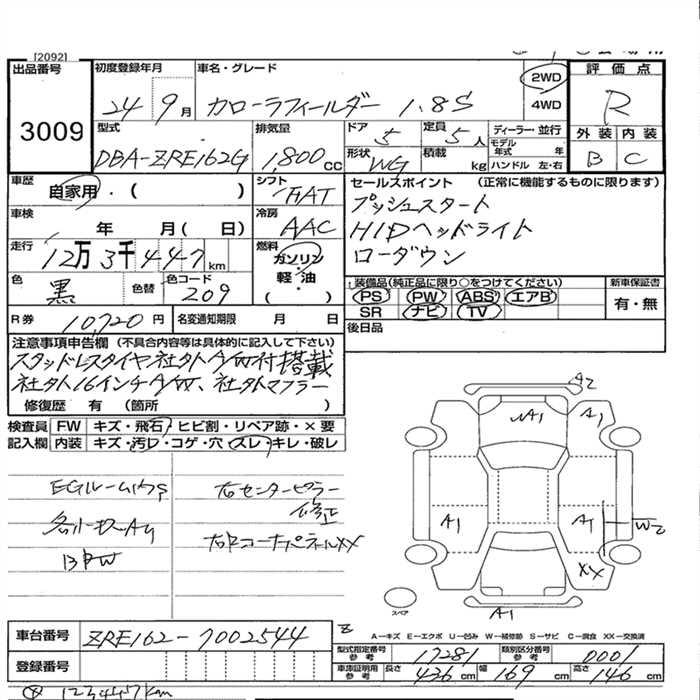 [2092]
出品番号
3009
初度登録年月
24年9月
車名・グレード
カローラフィールダー 1.8S
2WD
4WD
評価点
R
外装 内装
B C
型式
DBA-ZRE162G
排気量
1,800cc
ドア 5
定員 5人
形状 WG
積載 kg
ディーラー・並行
モデル年式 年
ハンドル 左・右
車歴
自家用・( )
シフト FAT
車検
年 月(日)
冷房 AAC
走行
12万3千447km
燃料
ガソリン
軽・油
( )
色 黒
色替
色コード 209
R券 10,720円
名変通知期限 月 日
セールスポイント (正常に機能するものに限ります)
プッシュスタート
HIDヘッドライト
ローダウン
装備品(純正品に限り○をつけてください)
PS PW ABS エアB
SR ナビ TV
新車保証書
有・無
後日品
注意事項申告欄 (不具合内容等は具体的に記入して下さい)
スタッドレスタイヤ社外A/W付搭載
社外16インチA/W、社外マフラー
修復歴 有 (箇所 )
検査員 FW キズ・飛石・ヒビ割・リペア跡・×要
記入欄 内装 キズ・汚れ・コゲ・穴・スレ・キレ・破レ
右センターピラー
修正
右Rコーナーパネル××
A2
A1
A1
A1
A1
W2
XX
A1
スペア
A－キズ E－エクボ U－凹み W－補修跡 S－サビ C－腐食 XX－交換済
車台番号 ZRE162-7002544
登録番号
型式指定番号 参考 17281
類別区分番号 参考 0001
車庫証明用 参考 長さ 436cm 幅 169cm 高さ 146cm
123447km